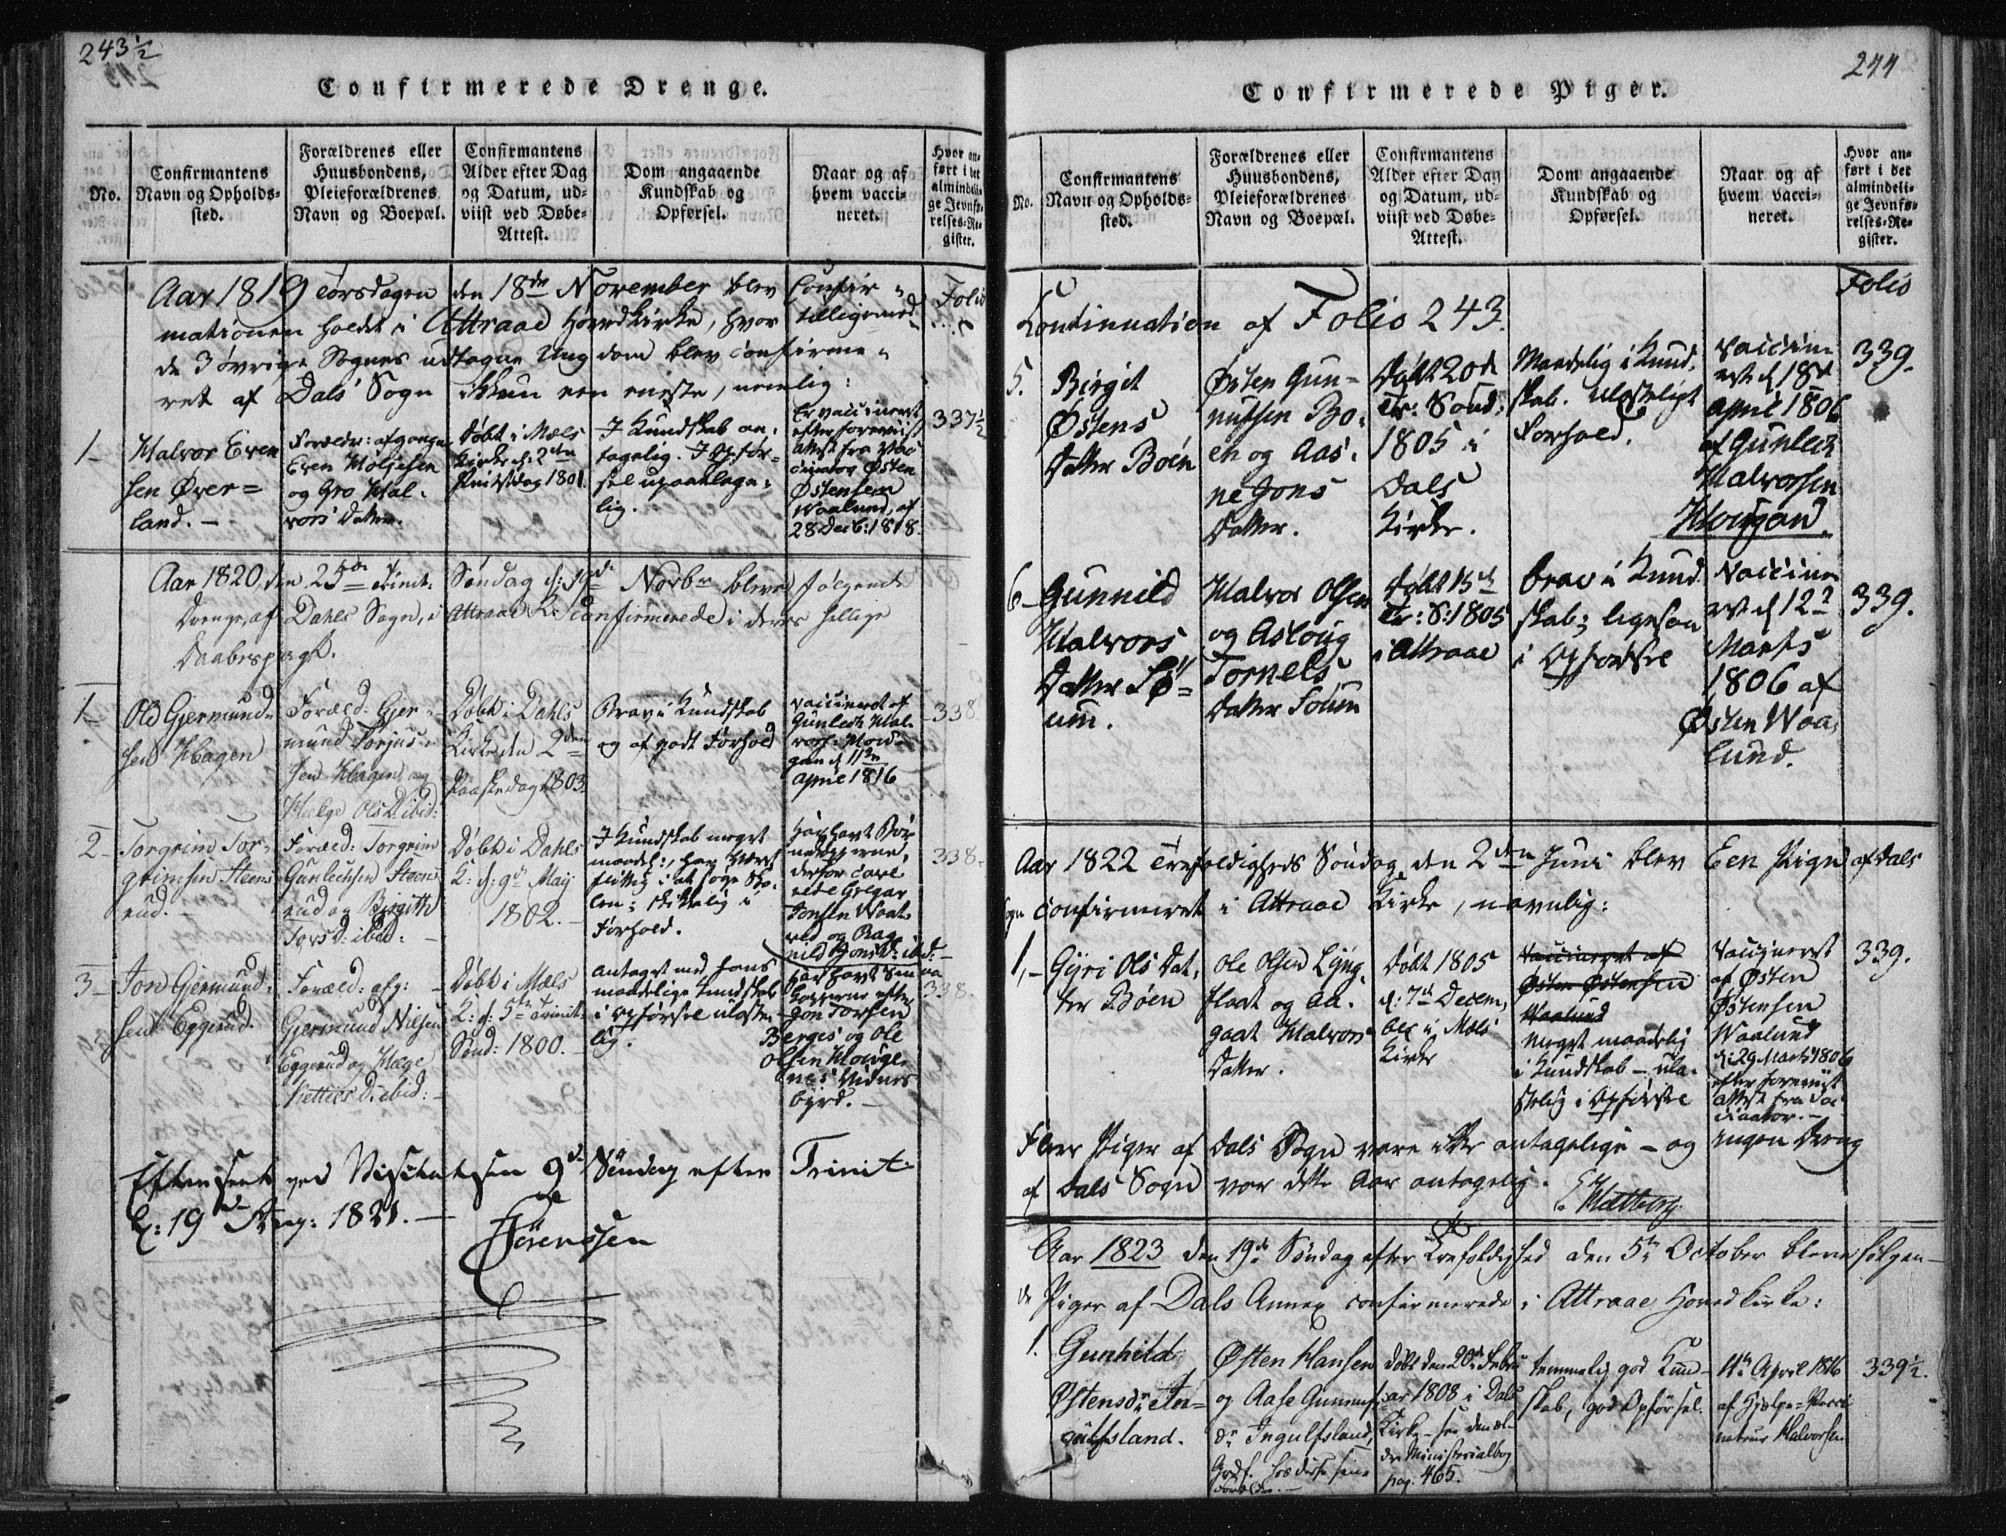 243½
Confirmerede Drenge.
No.
Confirmantens
Navn og Opholds-
sted.
Forældrenes eller
Huusbondens,
Pleieforældrenes
Navn og Boepæl.
Confirmantens
Alder efter Dag
og Datum, ud-
viist ved Døbe-
Attest.
Dom angaaende
Kundskab og
Opførsel.
Naar og af
hvem vacci-
neret.
Hvor an-
ført i det
almindeli-
ge Jevnfø-
relses-Re-
gister.
Aar 1819 Torsdagen den 18de November blev Confir-
mationen holdt i Attraae Hovedkirke, hvor tilligemed
de 3 øvrige Sognes udtagne Ungdom blev confirme-
ret af Dals Sogn Kun een eneste, nemlig:
Folio
1
Halvor Even
sen Øver=
land. -
Forældr: afgangne
Even Høljesen
og Gro Hal-
vors Datter.
Døbt i Mæls
Kirke d: 2den
Juledag 1801.
I Kundskab an-
tagelig. I Opfør-
sel upaaklage-
lig.
Er vaccineret
efter foreviist
Attest fra Vac
cinator Østen
Østensen
Waalund, af
28 Decb: 1818.
337½
Aar 1820, den 25de Trinit: Søndag d: 19de Novbr bleve følgende
Drenge, af Dahls Sogn, i Attraae K: Confirmerede i deres hellige
Daabespagt.
1
Ole Gjermund-
sen Hagen
Foræld: Gjer-
mund Torjus-
sen Hagen og
Hælge Ols D. ibid:
Døbt i Dahls
Kirke den 2den
Paaskedag 1803.
Brav i Kundskab
og af godt Forhold
vaccineret af
Gunlech Hal-
vors: Hou-
gan d 11te
April 1816
338
2
Torgrim Tor-
grimsen Steens
rud.
Foræld: Torgrim
Gunlechsen Steens
rud og Birgith
Torsd: ibid:
Døbt i Dahls
K: d: 9de Maij
1802.
I Kundskab meget
maadel:, har været
flittig i at søge Sko-
len; skikkelig i
Forhold.
Har havt Bør
nekopperne,
338.
3
Jon Gjermund-
sen Eggerud.
Foræld: afg:
Gjermund Nilsen
Eggerud og Hæge
Kettils D: ibid:
Døbt i Mæls
K: d: 5te Trinit:
Sønd: 1800.
Antaget med hans
maadelige Kundskab
i Opførsel ulaste-
lig.
Har havt Smaa
kopperne efter
Jon Torsen
Berges og Ole
Olsen Houge
nes Vidnes
byrd.
338.
Efterseet ved Visitatsen 9de Søndag efter Trinit:
d: 19de Aug: 1821.
Sörenssen
244
Confirmerede Piger.
No.
Confirmantens
Navn og Opholds-
sted.
Forældrenes eller
Huusbondens,
Pleieforældrenes
Navn og Boepæl.
Confirmantens
Alder efter Dag
og Datum, ud-
viist ved Døbe-
Attest.
Dom angaaende
Kundskab og
Opførsel.
Naar og af
hvem vacci-
neret.
Hvor an-
ført i det
almindeli-
ge Jevnfø-
relses-Re-
gister.
Folio
Continuation af Folio 243.
5.
Birgit
Østens
Datter Bøen
Østen Gun-
nufsen Bø-
en og Aas-
ne Jons
Datter.
Døbt 20de
Tr: Sønd:
1805 i
Dals
Kirke.
Maadelig i Kund-
skab. ulasteligt
Forhold.
Vaccine
ret d 18de
April 1806
af Gunlech
Halvorsen
Hougan.
339.
6
Gunnild
Halvors
Datter Sø-
um.
Halvor Olsen
og Aslaug
Tornels
Datter Søum
Døbt 15de
Tr: S: 1805
i Attraae
brav i Kund
skab; ligesaa
i Opførsel
Vaccine
ret d 12te
Marts
1806 af
Østen Waa
lund.
339.
Aar 1822 Trefoldigheds Søndag den 2den Juni blev Een Pige af Dals
Sogn confirmeret i Attraae Kirke, navnlig:
1,-
Gyri Ols Dat-
ter Bøen
Ole Olsen Lyng-
flaat og Aa-
gaat Halvors
Datter.
Døbt 1805
d: 7de Decem-
ber i Mæls
Kirke
Vaccineret af
Østen Østensen
Waalund
meget maadelig
i Kundskab - ula-
stelig i Opførsel
Vaccineret
af Østen
Østensen
Waalund
d: 29 Marts 1806
efter foreviist
Attest fra Vac
cinator. -
339.
Flere Piger af Dals Sogn vare ikke antagelige - og ingen Dreng
af Dals Sogn var dette Aar antagelig.
Aar 1823 den 19de Søndag efter Trefoldighed den 5te October bleve følgen-
de Piger af Dals Annex confirmerede i Attraae Hovedkirke:
1.
Gunhild
Østensdr. In-
gulfsland.
Østen Hansen
og Aase Gunnufs
dr Ingulfsland
Døbt den 20de Febru
ar 1808 i Dals
Kirke - see den æl-
dre Ministerialbog
pag. 465.
temmelig god Kund-
skab, god Opførsel.
11te April 1816
af Hjelpe-Vacci
nateur Halvorsen
339½.